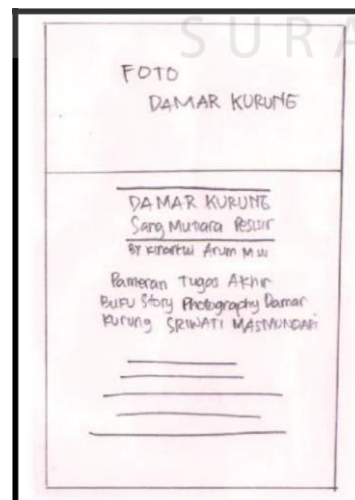 SURA
FOTO
DAMAR KURUNG
DAMAR KURUNG
Sang Mutiara Pesisir
BY Kinartwi Arum M.W
Pameran Tugas Akhir
Buku Story Photography Damar
Kurung SRIWATI MASMUNDARI